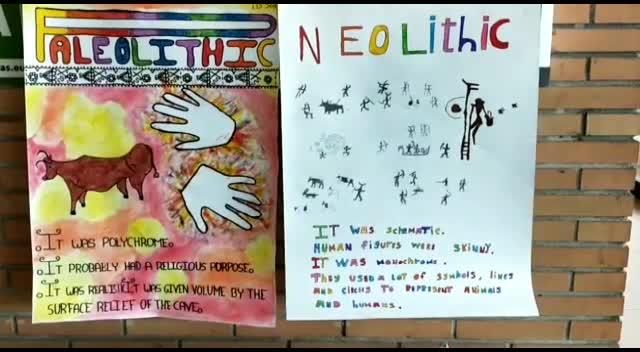 PALEOLITHIC
IT WAS POLYCHROME.
IT PROBABLY HAD A RELIGIOUS PORPOSE.
IT WAS REALISTIC. IT WAS GIVEN VOLUME BY THE
SURFACE RELIEF OF THE CAVE.
NEOLithiC
IT WAS SCHEMATIC.
HUMAN FIGURES WERE SKINNY.
IT WAS MONOCHROME.
THEY USED A LOT OF SYMBOLS, LINES
AND CIRCLES TO REPRESENT ANIMALS
AND HUMANS.